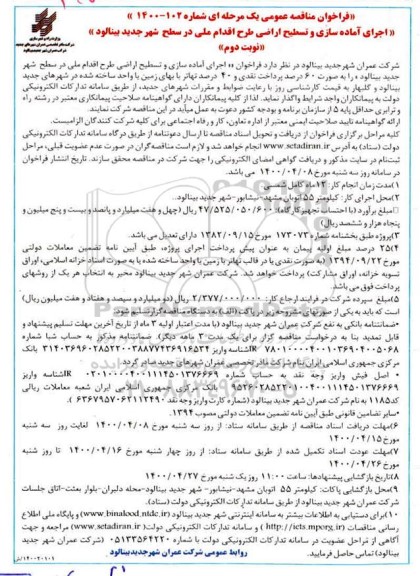 «فراخوان مناقصه عمومی یک مرحله ای شماره ۱۰۲-۱۴۰۰»
« اجرای آماده سازی و تسطیح اراضی طرح اقدام ملی در سطح شهر جدید بینالود »
«نوبت دوم»
شرکت عمران شهر جدید بینالود در نظر دارد فراخوان « اجرای آماده سازی و تسطیح اراضی طرح اقدام ملی در سطح شهر
جدید بینالود » را به صورت ۶۰ درصد پرداخت نقدی و ۴۰ درصد تهاتر با بهای زمین یا واحد ساخته شده در شهرهای جدید
بینالود و گلبهار به قیمت کارشناسی روز با رعایت ضوابط و مقررات شهرهای جدید، از طریق سامانه تدارکات الکترونیکی
دولت به پیمانکاران واجد شرایط واگذار نماید. لذا از کلیه پیمانکاران دارای گواهینامه صلاحیت پیمانکاری معتبر در رشته راه
و ترابری حداقل پایه ۵ از سازمان برنامه و بودجه کشور دعوت به عمل می‌آید در این مناقصه شرکت نمایند.
ارائه گواهینامه تایید صلاحیت ایمنی معتبر از اداره تعاون، کار و رفاه اجتماعی برای کلیه شرکت کنندگان الزامیست.
کلیه مراحل برگزاری فراخوان از دریافت و تحویل اسناد مناقصه تا ارسال دعوتنامه از طریق درگاه سامانه تدارکات الکترونیکی
دولت (ستاد) به آدرس www.setadiran.ir انجام خواهد شد و لازم است مناقصه گران در صورت عدم عضویت قبلی، مراحل
ثبت‌نام در سایت مذکور و دریافت گواهی امضای الکترونیکی را جهت شرکت در مناقصه محقق سازند. تاریخ انتشار فراخوان
در سامانه روز سه شنبه مورخ ۱۴۰۰/۰۴/۰۸ می باشد.
۱)مدت زمان انجام کار: ۱۲ماه کامل شمسی
۲)محل اجرای کار: کیلومتر ۵۵ اتوبان مشهد-نیشابور- شهر جدید بینالود..
مبلغ برآورد (با احتساب تجهیز کارگاه): ۴۷/۵۲۵/۰۵۰/۶۰۰ ریال (چهل و هفت میلیارد و پانصد و بیست و پنج میلیون و
پنجاه هزار و ششصد ریال)
۳)پروژه طبق بخشنامه شماره ۱۷۳۰۷۳ مورخ ۱۳۸۲/۰۹/۱۵ دارای تعدیل می باشد.
۴)۲۵ درصد مبلغ اولیه پیمان به عنوان پیش پرداخت اجرای پروژه، طبق آیین نامه تضمین معاملات دولتی
۱۳۹۴/۰۹/۲۲ (به صورت نقدی یا در قالب تهاتر با زمین یا واحد ساخته شده یا به صورت اسناد خزانه اسلامی، اوراق
تسویه خزانه، اوراق مشارکت) پرداخت خواهد شد. شرکت عمران شهر جدید بینالود مخیر به انتخاب هر یک از روشهای
پرداخت فوق می باشد
۵)مبلغ سپرده شرکت در فرایند ارجاع کار: ۲/۳۷۷/۰۰۰/۰۰۰ ریال (دو میلیارد و سیصد و هفتاد و هفت میلیون ریال)
است که باید به یکی از صورتهای مشروحه زیر در پاکت (الف) به دستگاه مناقصه گزار تسلیم شود.
-ضمانتنامه بانکی به نفع شرکت عمران شهر جدید بینالود (با مدت اعتبار اولیه ۳ ماه از تاریخ آخرین مهلت تسلیم پیشنهاد و
قابل تمدید بنا به درخواست مناقصه گزار برای یک مدت ۳ ماهه دیگر).
مرکزی جمهوری اسلامی ایران بنام شرکت مادر تخصصی عمران شهرهای جدید صادر گردد.
-سایر تضامین قانونی طبق آیین نامه تضمین معاملات دولتی مصوب ۱۳۹۴.
۶)مهلت دریافت اسناد مناقصه از طریق سامانه ستاد: از روز سه شنبه مورخ ۱۴۰۰/۰۴/۰۸ لغایت روز سه شنبه
مورخ ۱۴۰۰/۰۴/۱۵
۷)مهلت عودت اسناد تکمیل شده از طریق سامانه ستاد: از روز چهار شنبه مورخ ۱۴۰۰/۰۴/۱۶ تا روز شنبه
مورخ ۱۴۰۰/۰۴/۲۶
۸)تاریخ بازگشایی پیشنهادها: ساعت ۱۱:۰۰ روز یک شنبه مورخ ۱۴۰۰/۰۴/۲۷
۹)محل بازگشایی پاکات: کیلومتر ۵۵ اتوبان مشهد-نیشابور- شهر جدید بینالود-محله دلبران-بلوار بعثت-اتاق جلسات
شرکت عمران شهر جدید بینالود از طریق سامانه تدارکات الکترونیکی دولت (ستاد).
۱۰)برای دستیابی به اطلاعات بیشتر به سامانه اینترنتی شهر جدید بینالود (www.binalood.ntdc.ir) و پایگاه ملی اطلاع
رسانی مناقصات (http://iets.mporg.ir) و سامانه تدارکات الکترونیکی دولت( www.setadiran.ir) مراجعه و جهت
آگاهی از مراحل عضویت در سامانه تدارکات الکترونیکی دولت با شماره ۰۵۱۳۳۵۶۴۲۲۰ (شرکت عمران شهر جدید
بینالود) تماس حاصل فرمایید.
روابط عمومی شرکت عمران شهر جدید بینالود